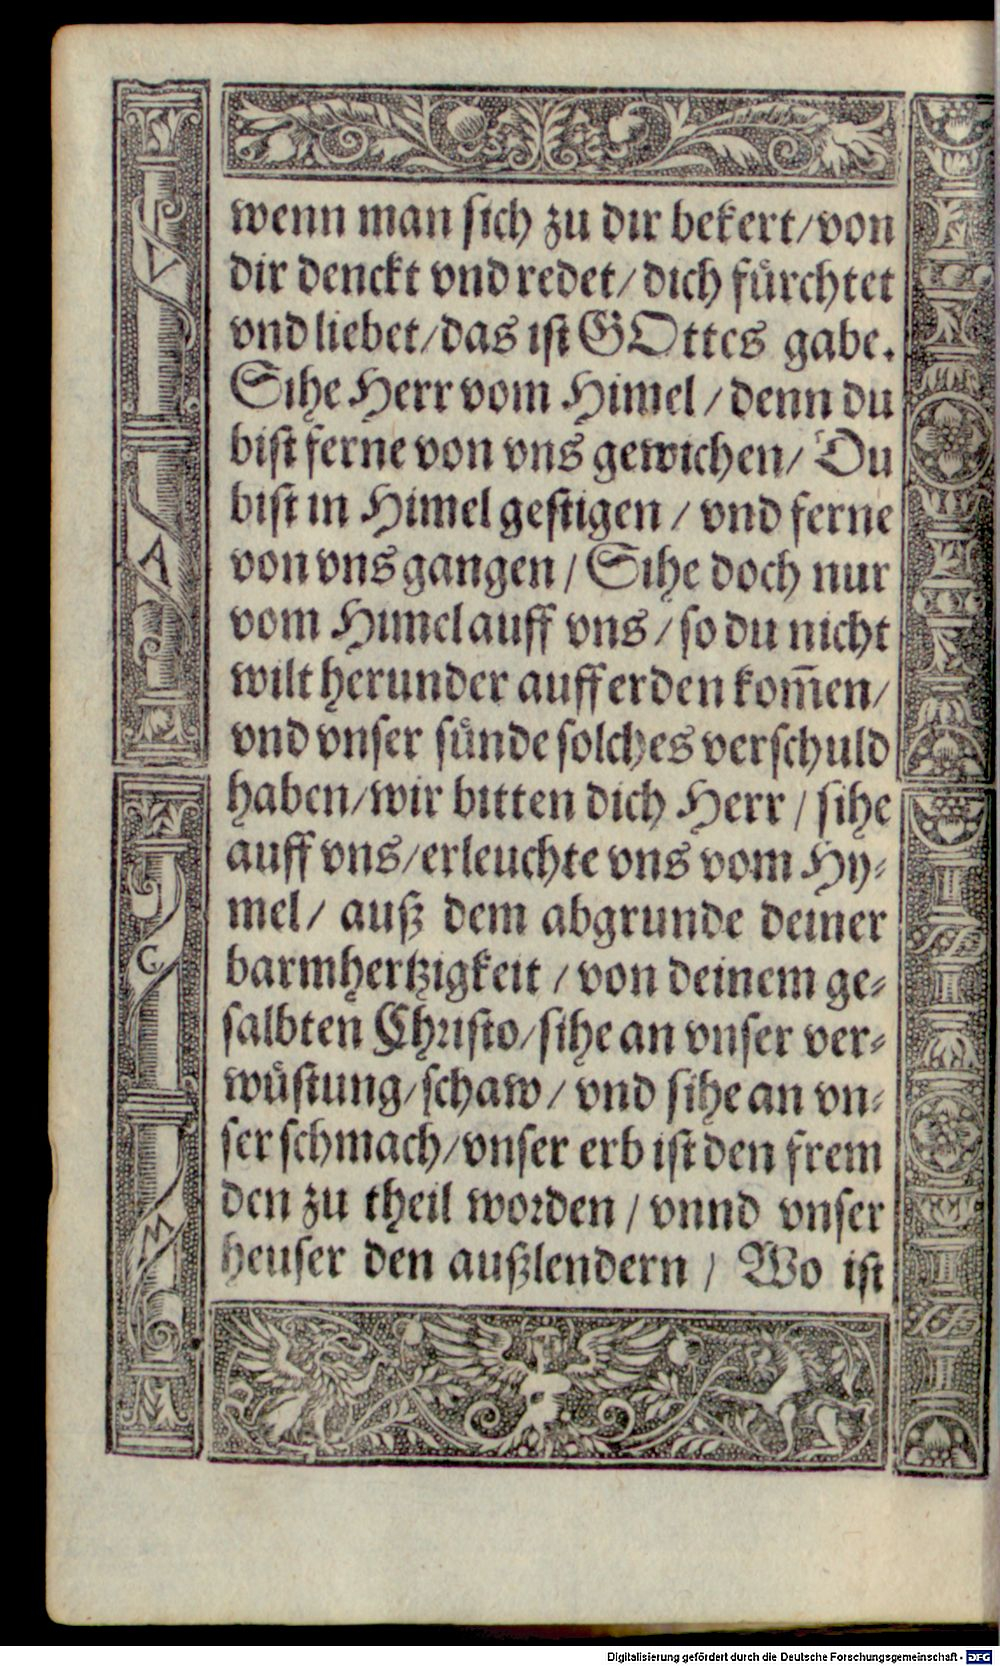 wenn man sich zu dir bekert/von
dir denckt vnd redet/dich fuͤrchtet
vnd liebet/das ist GOttes gabe.
Sihe Herr vom Himel/denn du
bist ferne von vns gewichen/Du
bist in Himel gestigen/vnd ferne
von vns gangen/Sihe doch nur
vom Himel auff vns/so du nicht
wilt herunder auff erden kom̄en/
vnd vnser suͤnde solches verschuld
haben/wir bitten dich Herr/sihe
auff vns/erleuchte vns vom Hy⸗
mel/auß dem abgrunde deiner
barmhertzigkeit/von deinem ge⸗
salbten Christo/sihe an vnser ver⸗
wuͤstung/schaw/vnd sihe an vn⸗
ser schmach/vnser erb ist den frem
den zu theil worden/vnnd vnser
heuser den außlendern/Wo ist
V
A
G
M
Digitalisierung gefördert durch die Deutsche Forschungsgemeinschaft - DFG